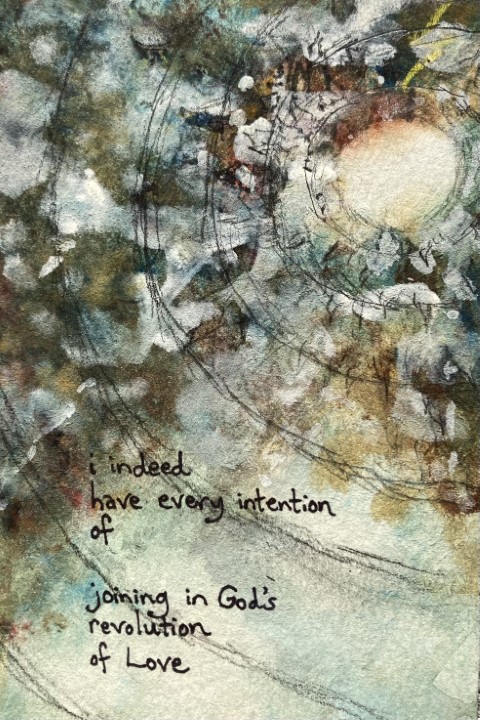 i indeed
have every intention
of
joining in God's
revolution
of Love